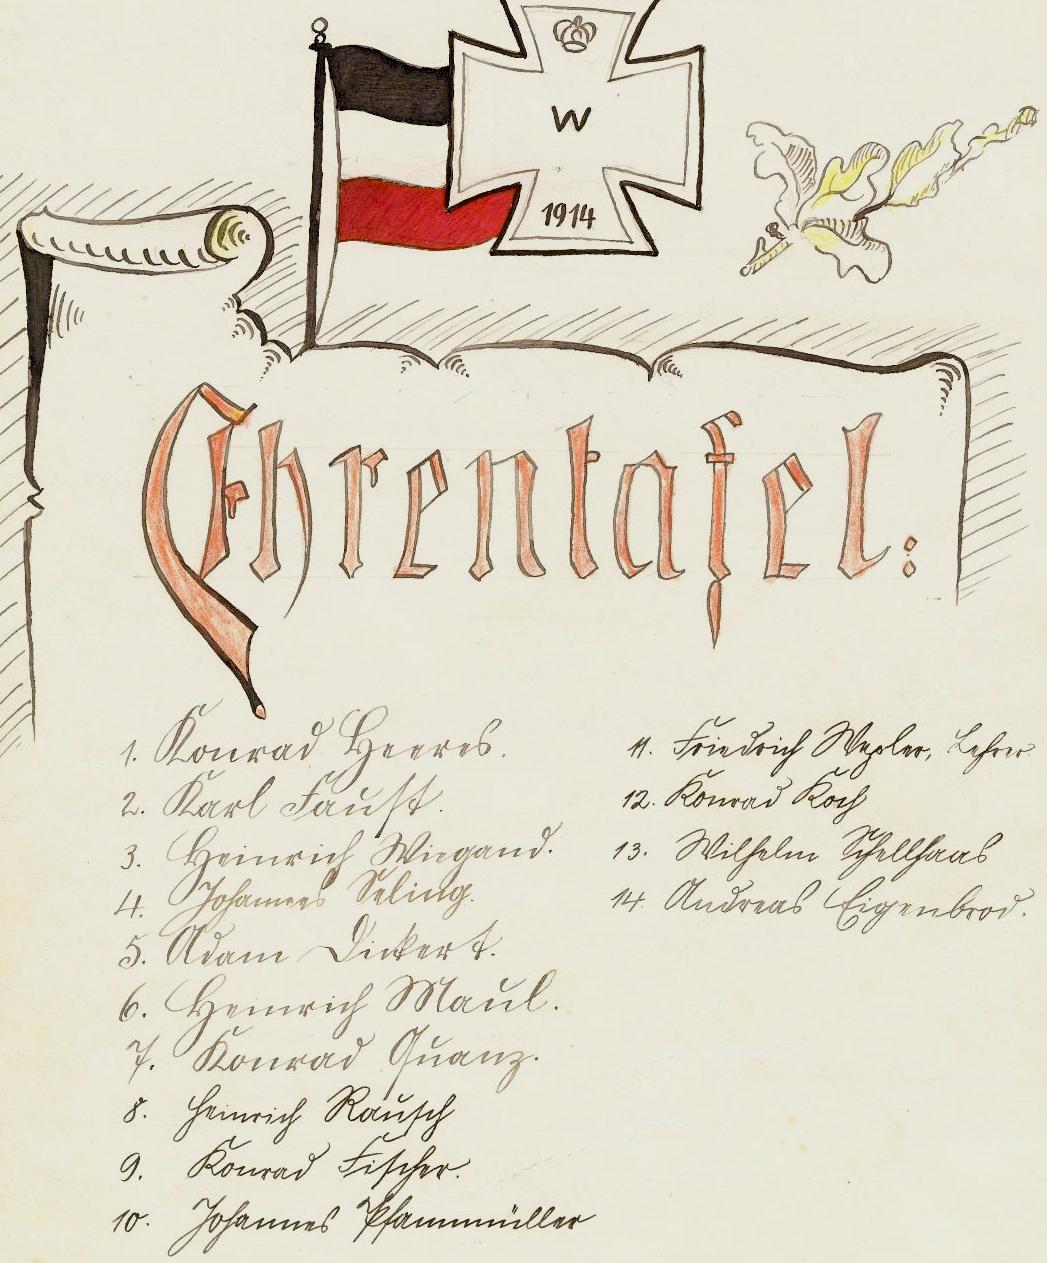 W
1914
Ehrentafel:
1. Konrad Heeres.
2. Karl Faust.
3. Heinrich Wiegand.
4. Johannes Seling.
5. Adam Dickert.
6. Heinrich Maul.
7. Konrad Quanz.
8. Heinrich Rausch
9. Konrad Fischer.
10. Johannes Pfannmüller
11. Friedrich Wepler, Lehrer
12. Konrad Koch
13. Wilhelm Schellhaas
14. Andreas Eigenbrod.